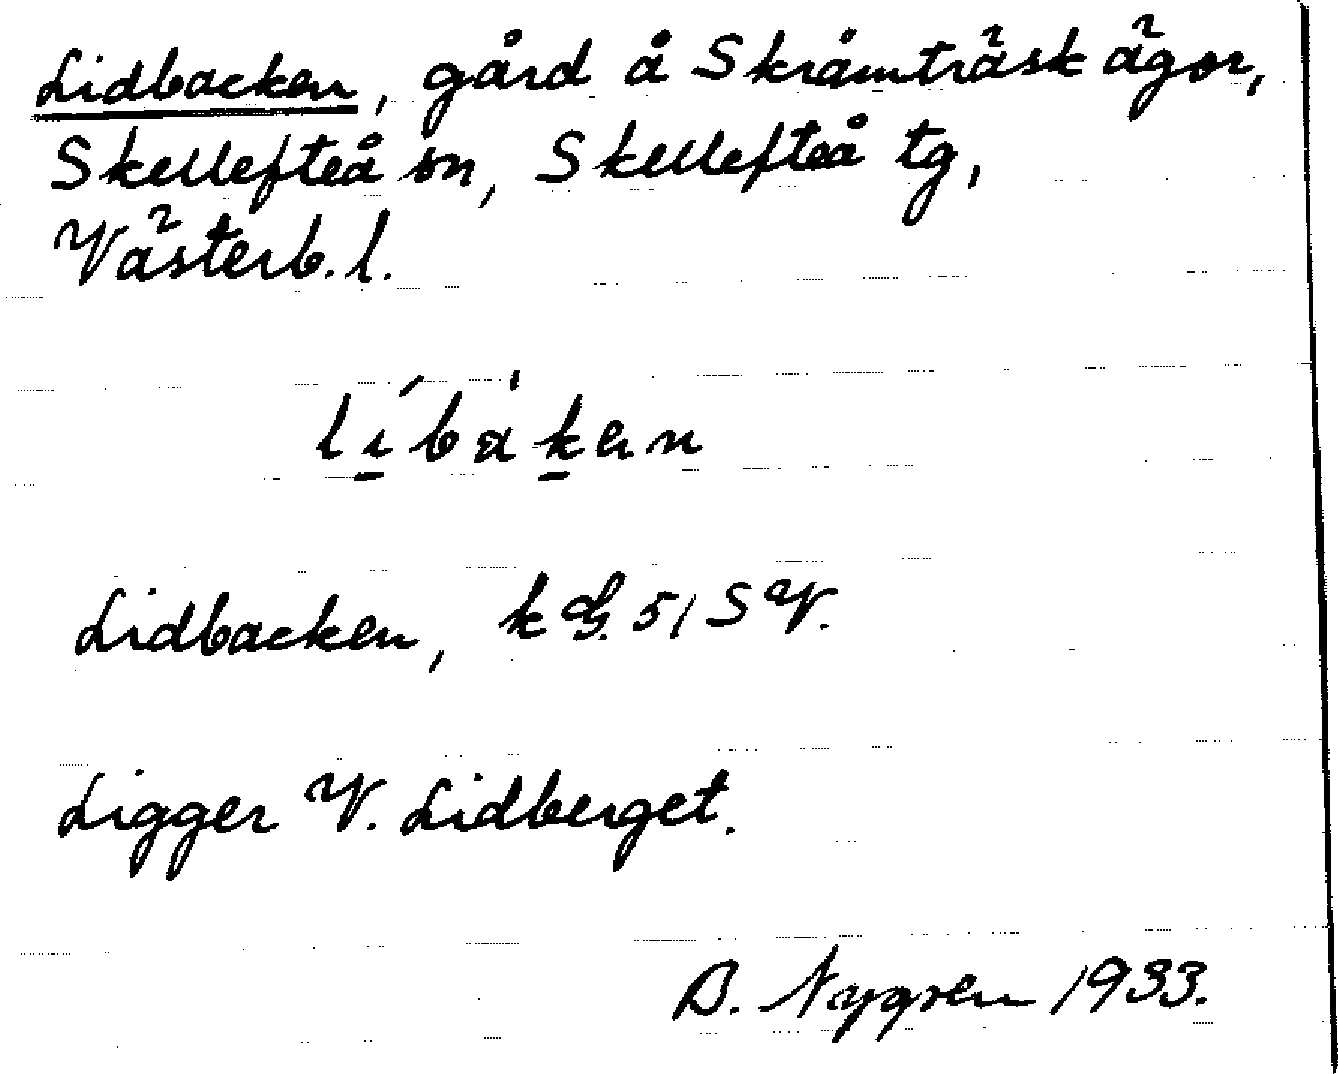 Lidbacken, gård å Skråmträsk ägor,
Skellefteå sn, Skellefteå tg,
Västerb. l.
Lidbacken, kG. 51 SV.
Ligger V. Lidberget.
B. Nygren 1933.